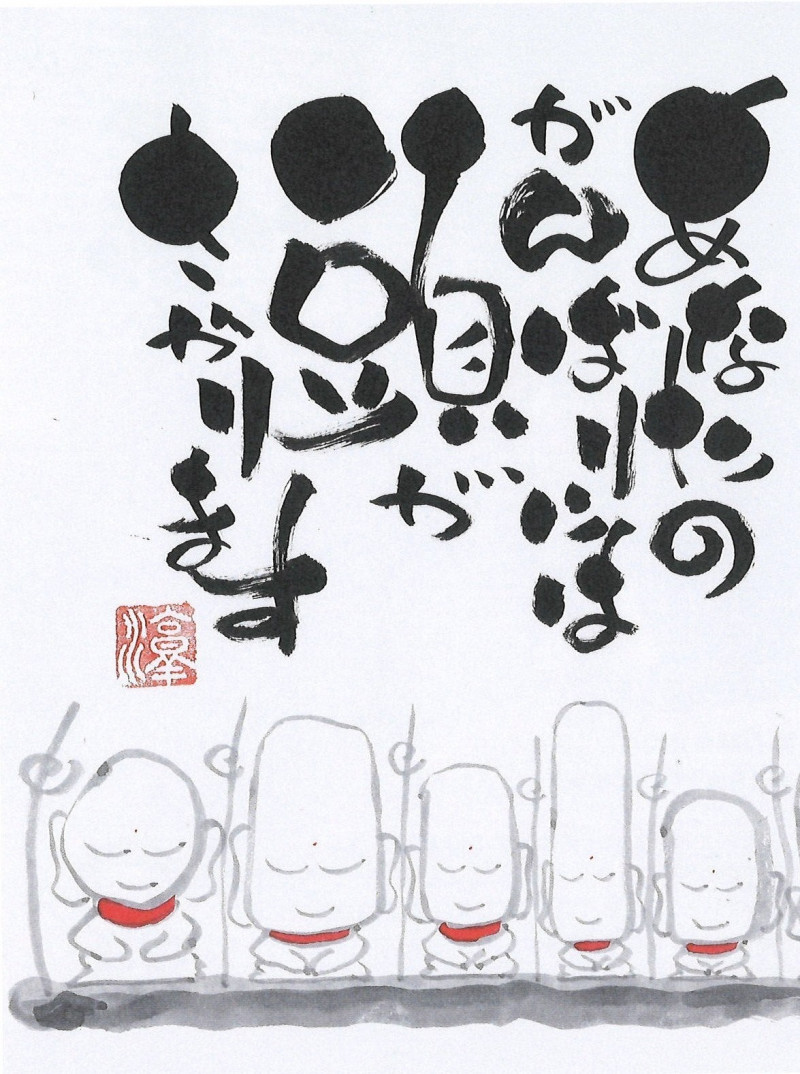 あなたの
がんばりには
頭が
さがります
淳